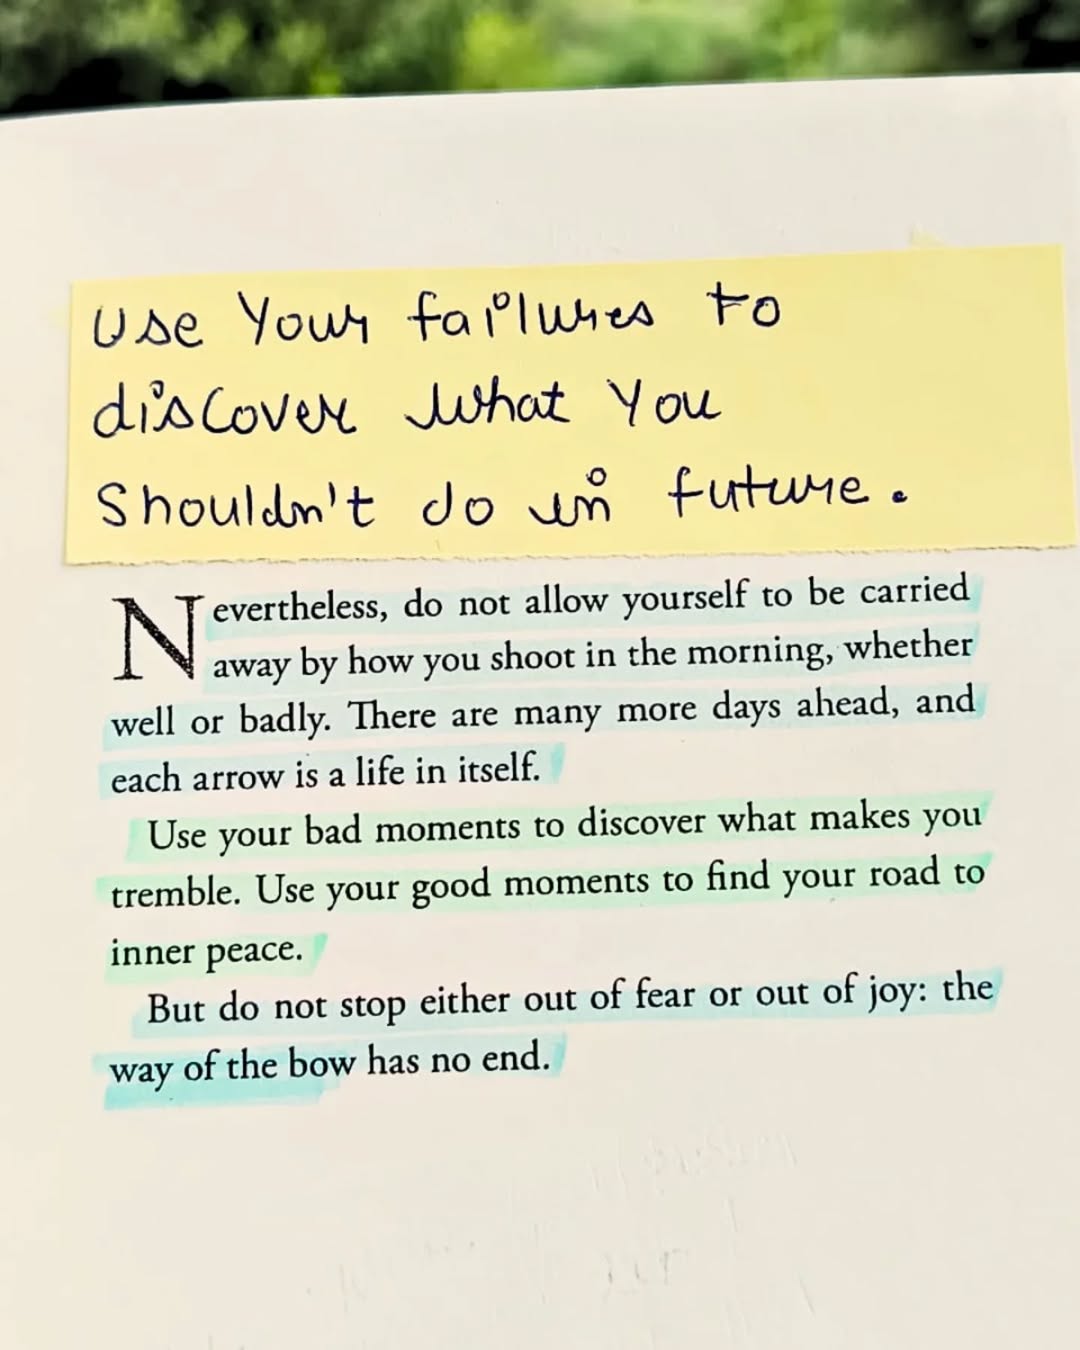 Use Your failures to
discover what You
Shouldn't do in future.
Nevertheless, do not allow yourself to be carried
away by how you shoot in the morning, whether
well or badly. There are many more days ahead, and
each arrow is a life in itself.
Use your bad moments to discover what makes you
tremble. Use your good moments to find your road to
inner peace.
But do not stop either out of fear or out of joy: the
way of the bow has no end.